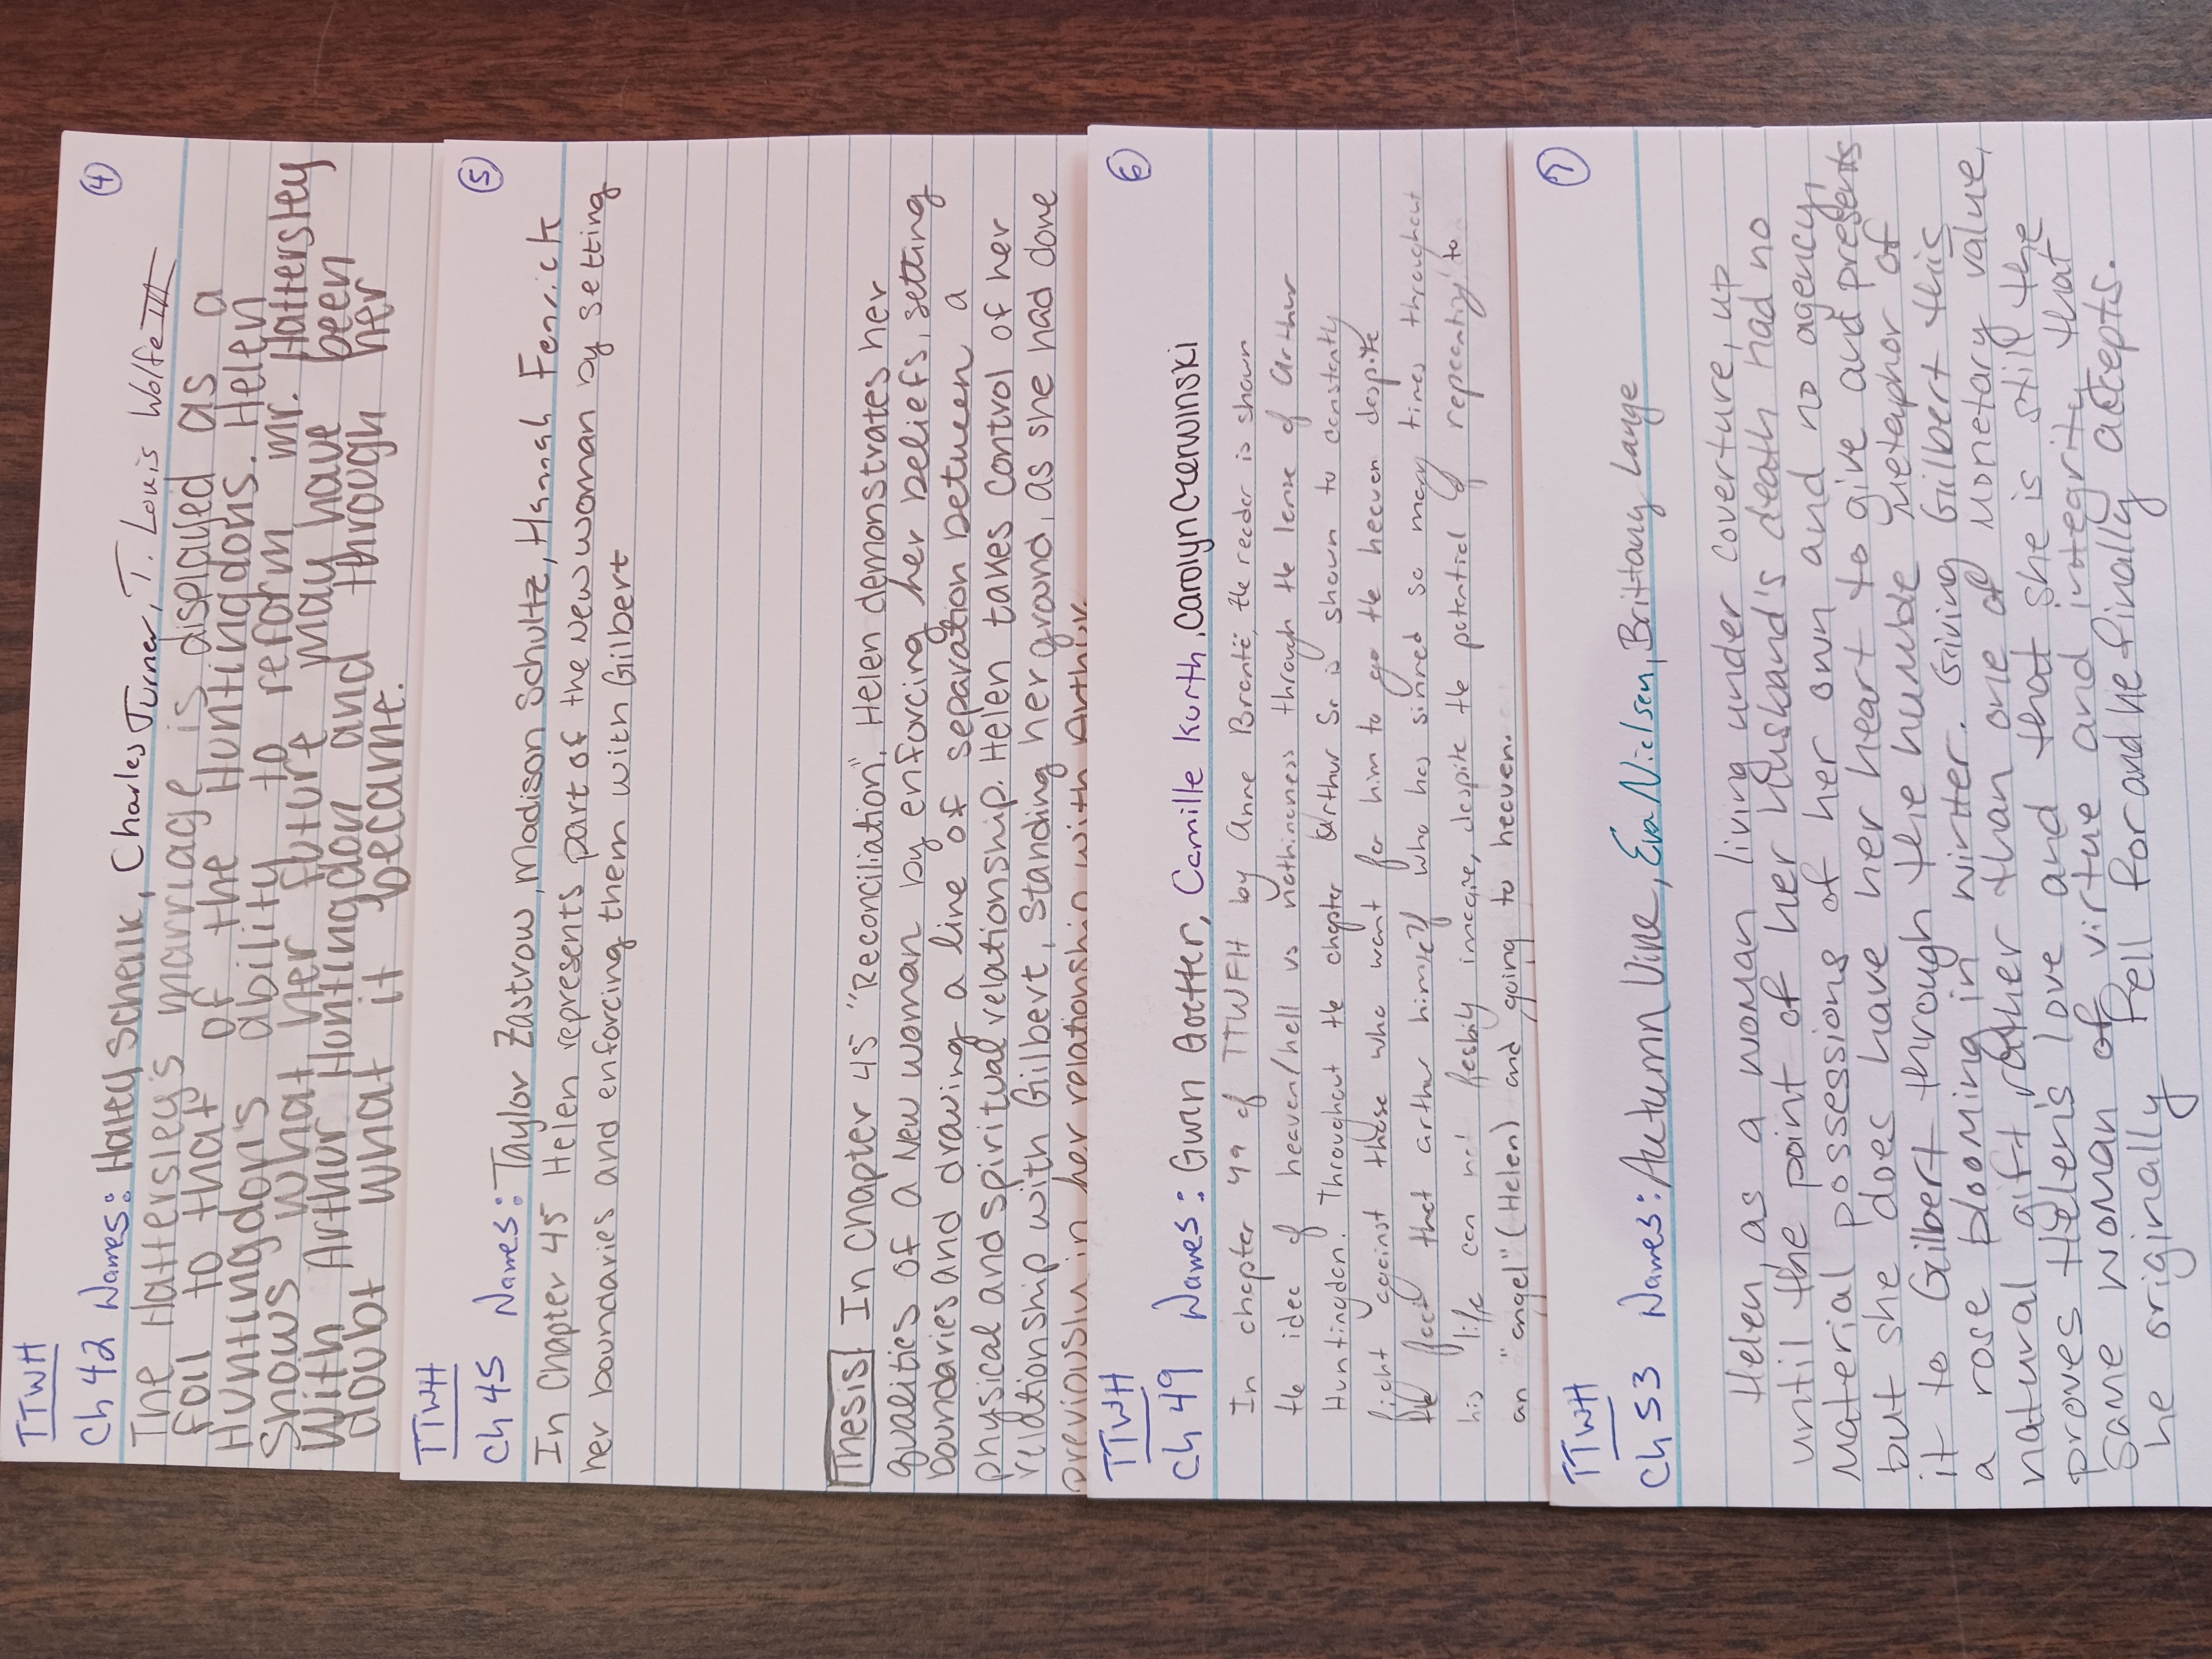 TTWH
④
Ch 42 Names: Haley Schenk, Charles Turner, T. Louis Wolfe III
The Hattersley's marriage is displayed as a
foil to that of the Huntingdons. Helen
Huntingdon's ability to reform Mr. Hattersley
shows what her future may have been
with Arthur Huntingdon and through her
doubt what it became.
TTWH
⑤
Ch 45 Names: Taylor Zastrow, Madison Schultz, Hannah Fenrick
In Chapter 45 Helen represents part of the New woman by setting
her boundaries and enforcing them with Gilbert
Thesis In Chapter 45 "Reconciliation", Helen demonstrates her
qualities of a New woman by enforcing her beliefs, setting
boundaries and drawing a line of separation between a
physical and spiritual relationship. Helen takes control of her
relationship with Gilbert, standing her ground, as she had done
previously in her relationship with Arthur
TTWH
⑥
Ch 49 Names: Gwin Goetter, Camille Kurth, Carolyn Czerwinski
In chapter 49 of TTWFH by Anne Brontë, the reader is shown
the idea of heaven/hell vs nothingness through the lense of Arthur
Huntingdon. Throughout the chapter Arthur Sr. is shown to constantly
fight against those who want for him to go the heaven despite
the fact that arthur himself who has sinned so many times throughout
his life can not feasibly imagine, despite the potential of repeating to
an "angel" (Helen) and going to heaven.
TTWH
⑦
Ch 53 Names: Autumn Vine, Eva Nielsen, Brittany Lange
Helen, as a woman living under coverture, up
until the point of her husband's death had no
material possessions of her own and no agency,
but she does have her heart to give and presents
it to Gilbert through the humble metaphor of
a rose blooming in winter. Giving Gilbert this
natural gift rather than one of monetary value,
proves Helen's love and that she is still the
same woman of virtue and integrity that
he originally fell for and he finally accepts.